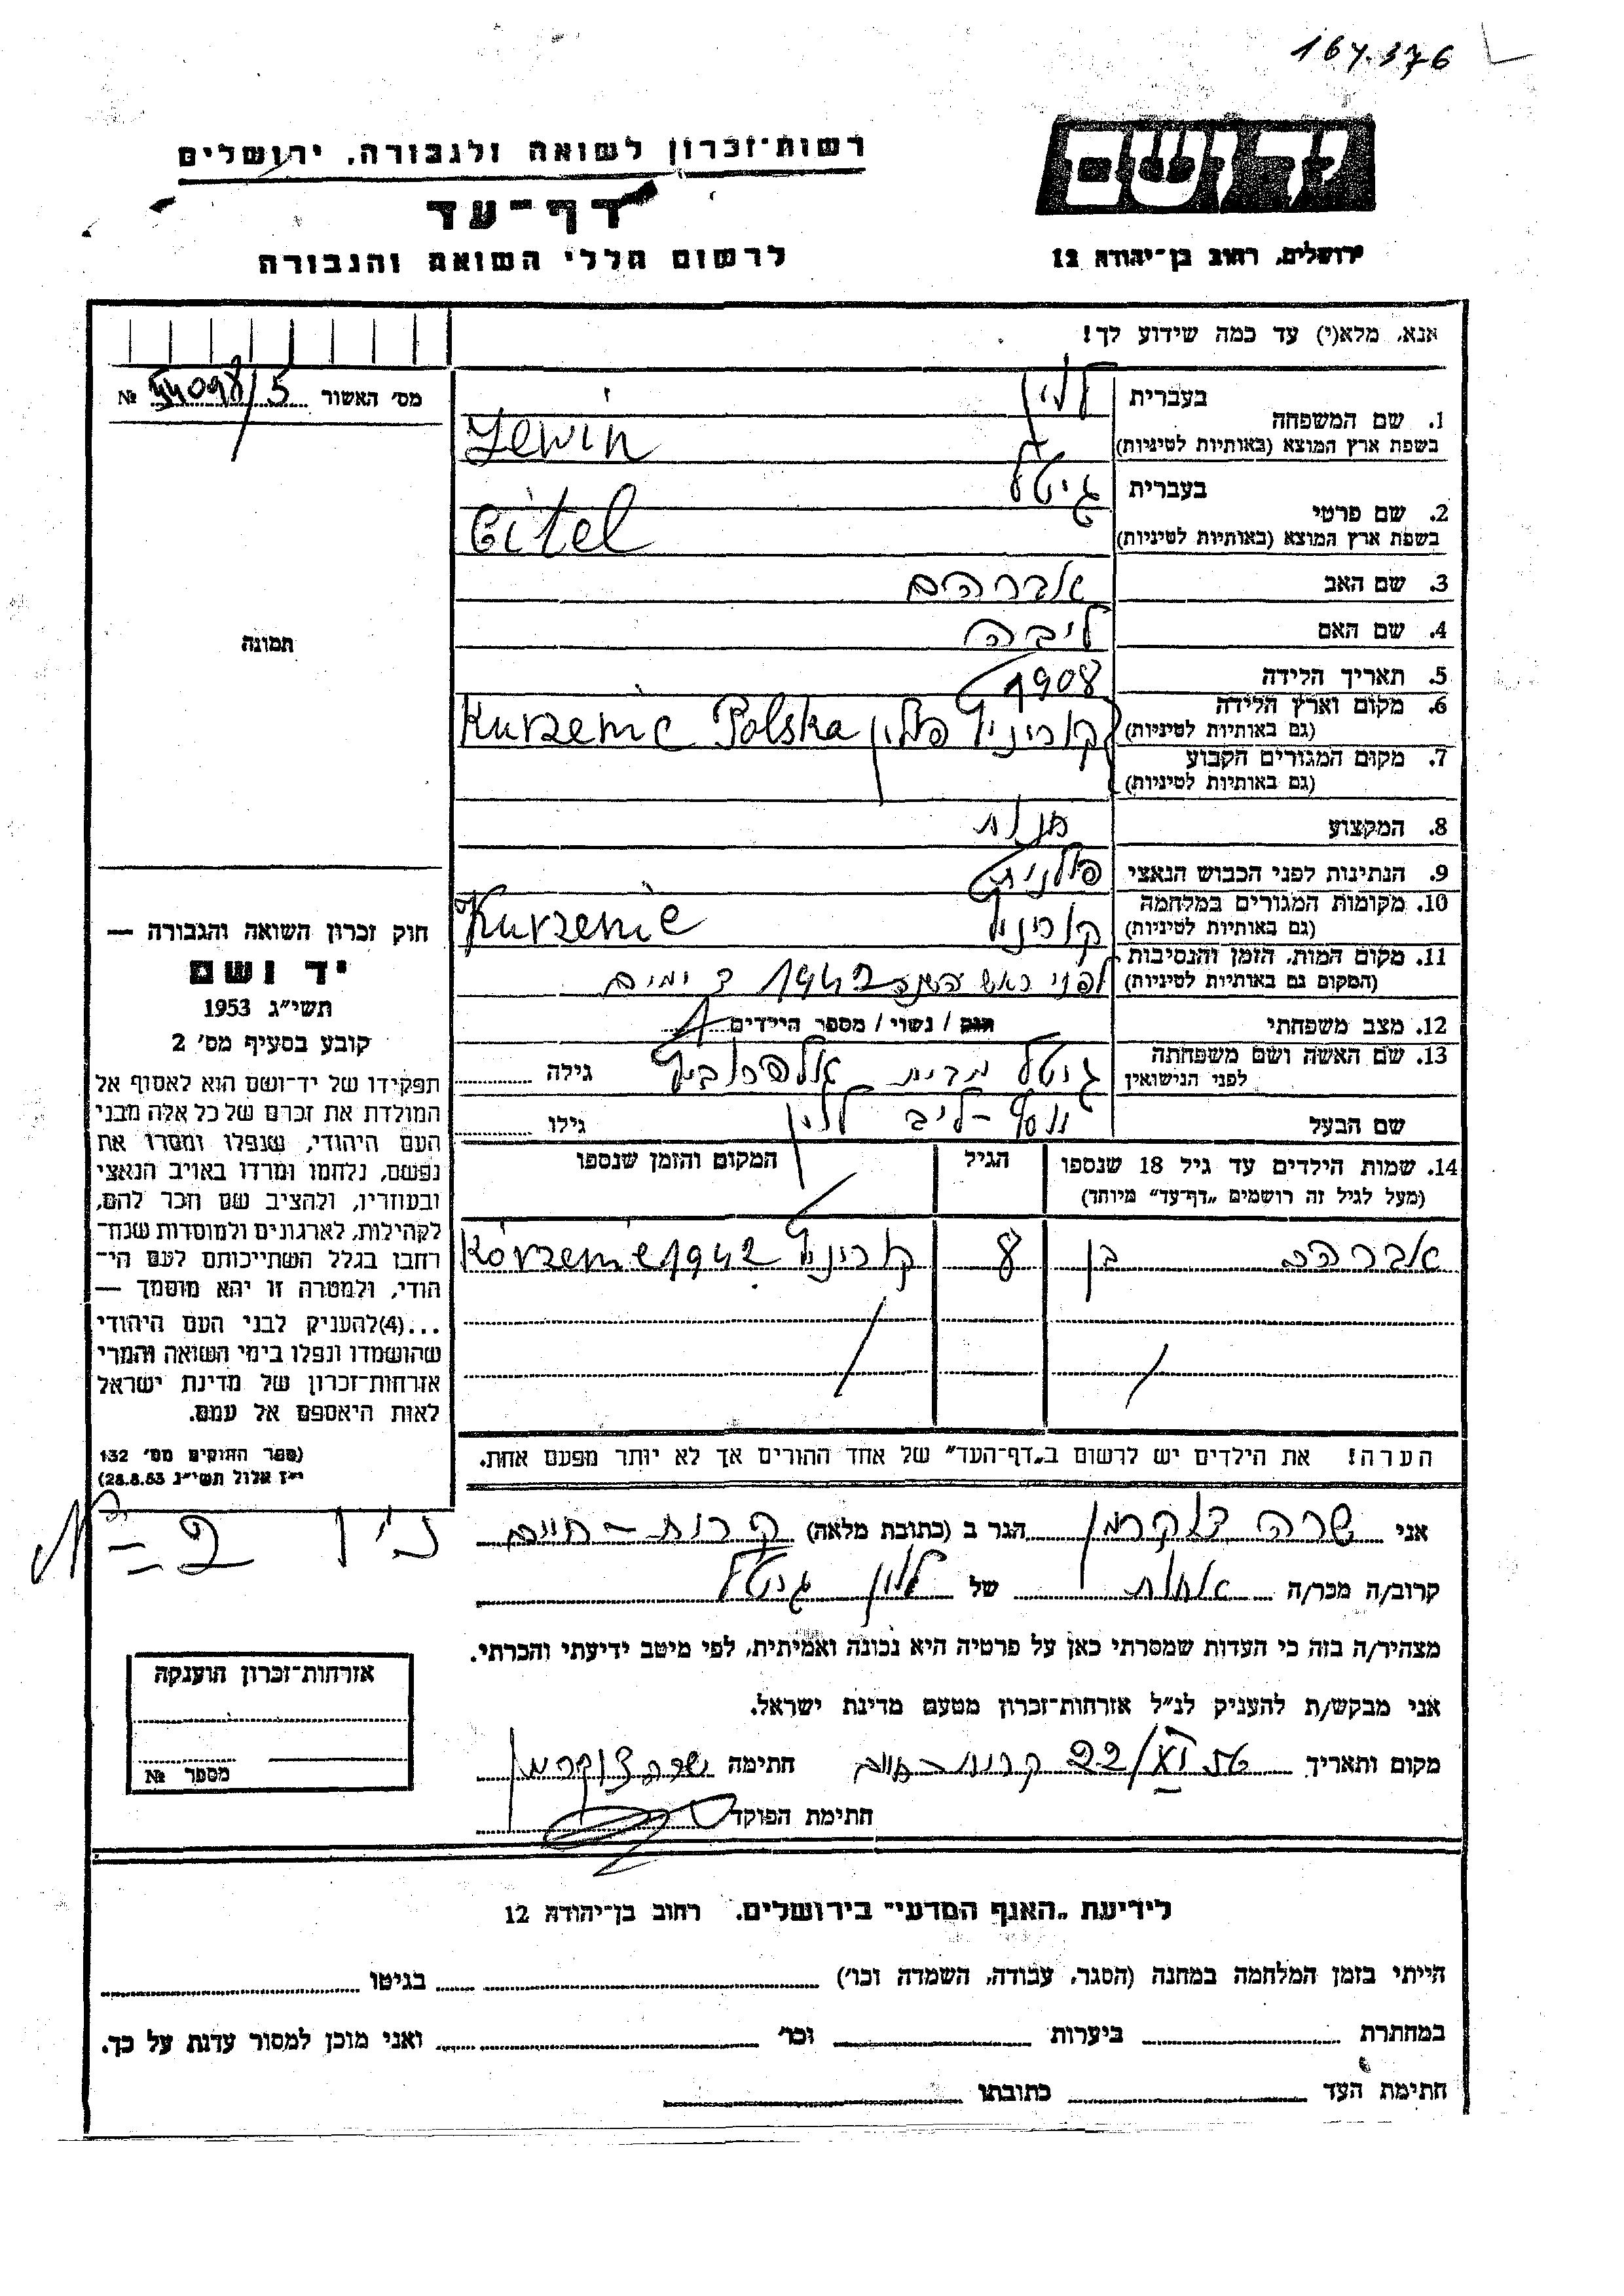 164.376
רשות־זכרון לשואה ולגבורה, ירושלים
יד ושם
דף־עד
לרשום חללי השואה והגבורה
ירושלים, רחוב בן־יהודה 12
אנא, מלא(י) עד כמה שידוע לך!
מס׳ האשור 5/54098 №
1. שם המשפחה בעברית לוין
בשפת ארץ המוצא (באותיות לטיניות) Lewin
2. שם פרטי בעברית גיטל
בשפת ארץ המוצא (באותיות לטיניות) Gitel
3. שם האב אברהם
4. שם האם ליבה
תמונה
5. תאריך הלידה 1908
6. מקום וארץ הלידה (גם באותיות לטיניות) קורניץ פולין Kurzenic Polska
7. מקום המגורים הקבוע (גם באותיות לטיניות)
8. המקצוע
9. הנתינות לפני הכבוש הנאצי פולנית
10. מקומות המגורים במלחמה (גם באותיות לטיניות) קורניץ Kurzenic
11. מקום המות, הזמן והנסיבות (המקום גם באותיות לטיניות) לפני ראש השנה 1942 3 ימים
12. מצב משפחתי רווק / נשוי / מספר הילדים 1
13. שם האשה ושם משפחתה לפני הנישואין גיטל מבית גילה
שם הבעל יוסף-ליב לוין גילו
14. שמות הילדים עד גיל 18 שנספו הגיל המקום והזמן שנספו
(מעל לגיל זה רושמים „דף־עד” מיוחד)
אברהם בן 8 קורניץ 1942 Korzenic
הערה! את הילדים יש לרשום ב„דף־העד” של אחד ההורים אך לא יותר מפעם אחת.
חוק זכרון השואה והגבורה —
יד ושם
תשי״ג 1953
קובע בסעיף מס׳ 2
תפקידו של יד־ושם הוא לאסוף אל
המולדת את זכרם של כל אלה מבני
העם היהודי, שנפלו ומסרו את
נפשם, נלחמו ומרדו באויב הנאצי
ובעוזריו, ולהציב שם וזכר להם,
לקהילות, לארגונים ולמוסדות שנח־
רחבו בגלל השתייכותם לעם הי־
הודי, ולמטרה זו יהא מוסמך —
...(4)להעניק לבני העם היהודי
שהושמדו ונפלו בימי השואה והמרי
אזרחות־זכרון של מדינת ישראל
לאות היאספם אל עמם.
(ספר החוקים מס׳ 132
י״ז אלול תשי״ג 28.8.53)
אני שרה צוקרמן הגר ב (כתובת מלאה) קרית-חיים
קרוב/ה מכר/ה אחות של לוין גיטל
מצהיר/ה בזה כי העדות שמסרתי כאן על פרטיה היא נכונה ואמיתית, לפי מיטב ידיעתי והכרתי.
אני מבקש/ת להעניק לנ״ל אזרחות־זכרון מטעם מדינת ישראל.
מקום ותאריך 22/XI קרית-חיים חתימה שרה צוקרמן
חתימת הפוקד
אזרחות־זכרון הוענקה
מספר №
לידיעת „האגף המדעי” בירושלים. רחוב בן־יהודה 12
הייתי בזמן המלחמה במחנה (הסגר, עבודה, השמדה וכו׳) בגיטו
במחתרת ביערות וכו׳ ואני מוכן למסור עדות על כך.
חתימת העד כתובתו